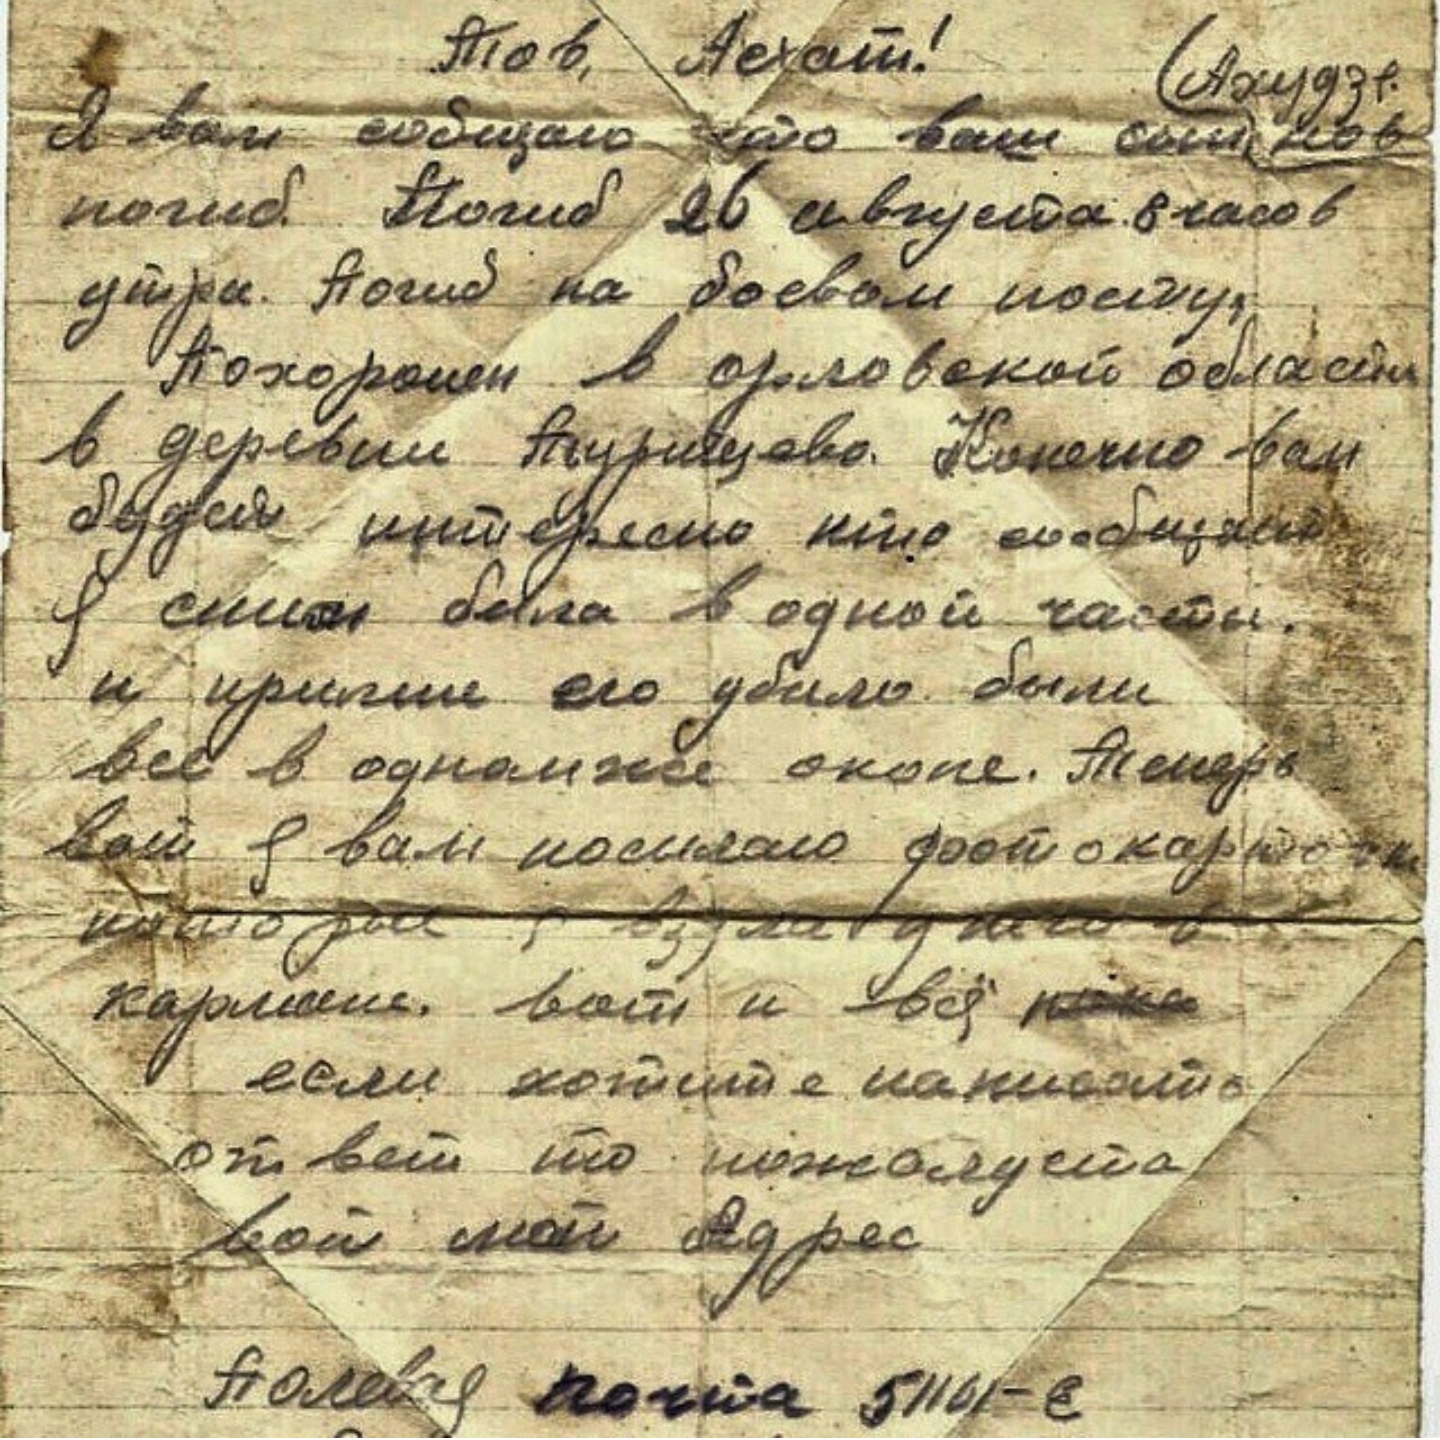 Тов, Асхат!
(Ахудзя
Я вам сообщаю что ваш сын, нов
погиб. Погиб 26 августа 8 часов
утра. Погиб на боевом посту,
Похоронен в орловской области
в деревни Конечно вам
будет интересно кто сообщает
я сним была в одной части.
и его убило были
все в одномже окопе. Теперь
вот я вам посылаю фотокарточки
которые я взяла унего в
кармане. вот и всё пока
если хотите написать
ответ то пожалуста
вот мой Адрес
Полевая почта